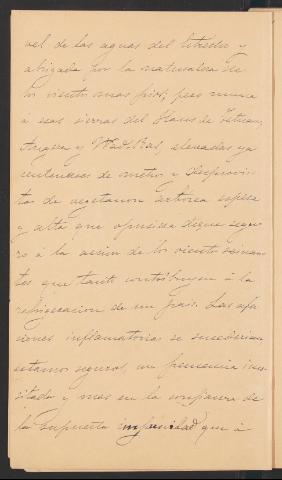 vel de las aguas del Estrecho y
abrigada por la naturaleza de
los vientos mas frios; pero nunca
á esas sierras del Haus de Tetuan,
Angera y Wad-Ras, elevadas ya
centenares de metros y desprovis-
tas de vegetacion arbórea espesa
y alta que opusiera dique segu-
ro á la accion de los vientos reinan-
tes que tanto contribuyen á la
refrigeracion de un pais. Las afec-
ciones inflamatorias se sucederian
estamos seguros, con frecuencia inu-
sitada y mas en la confianza de
la supuesta impunidad que á